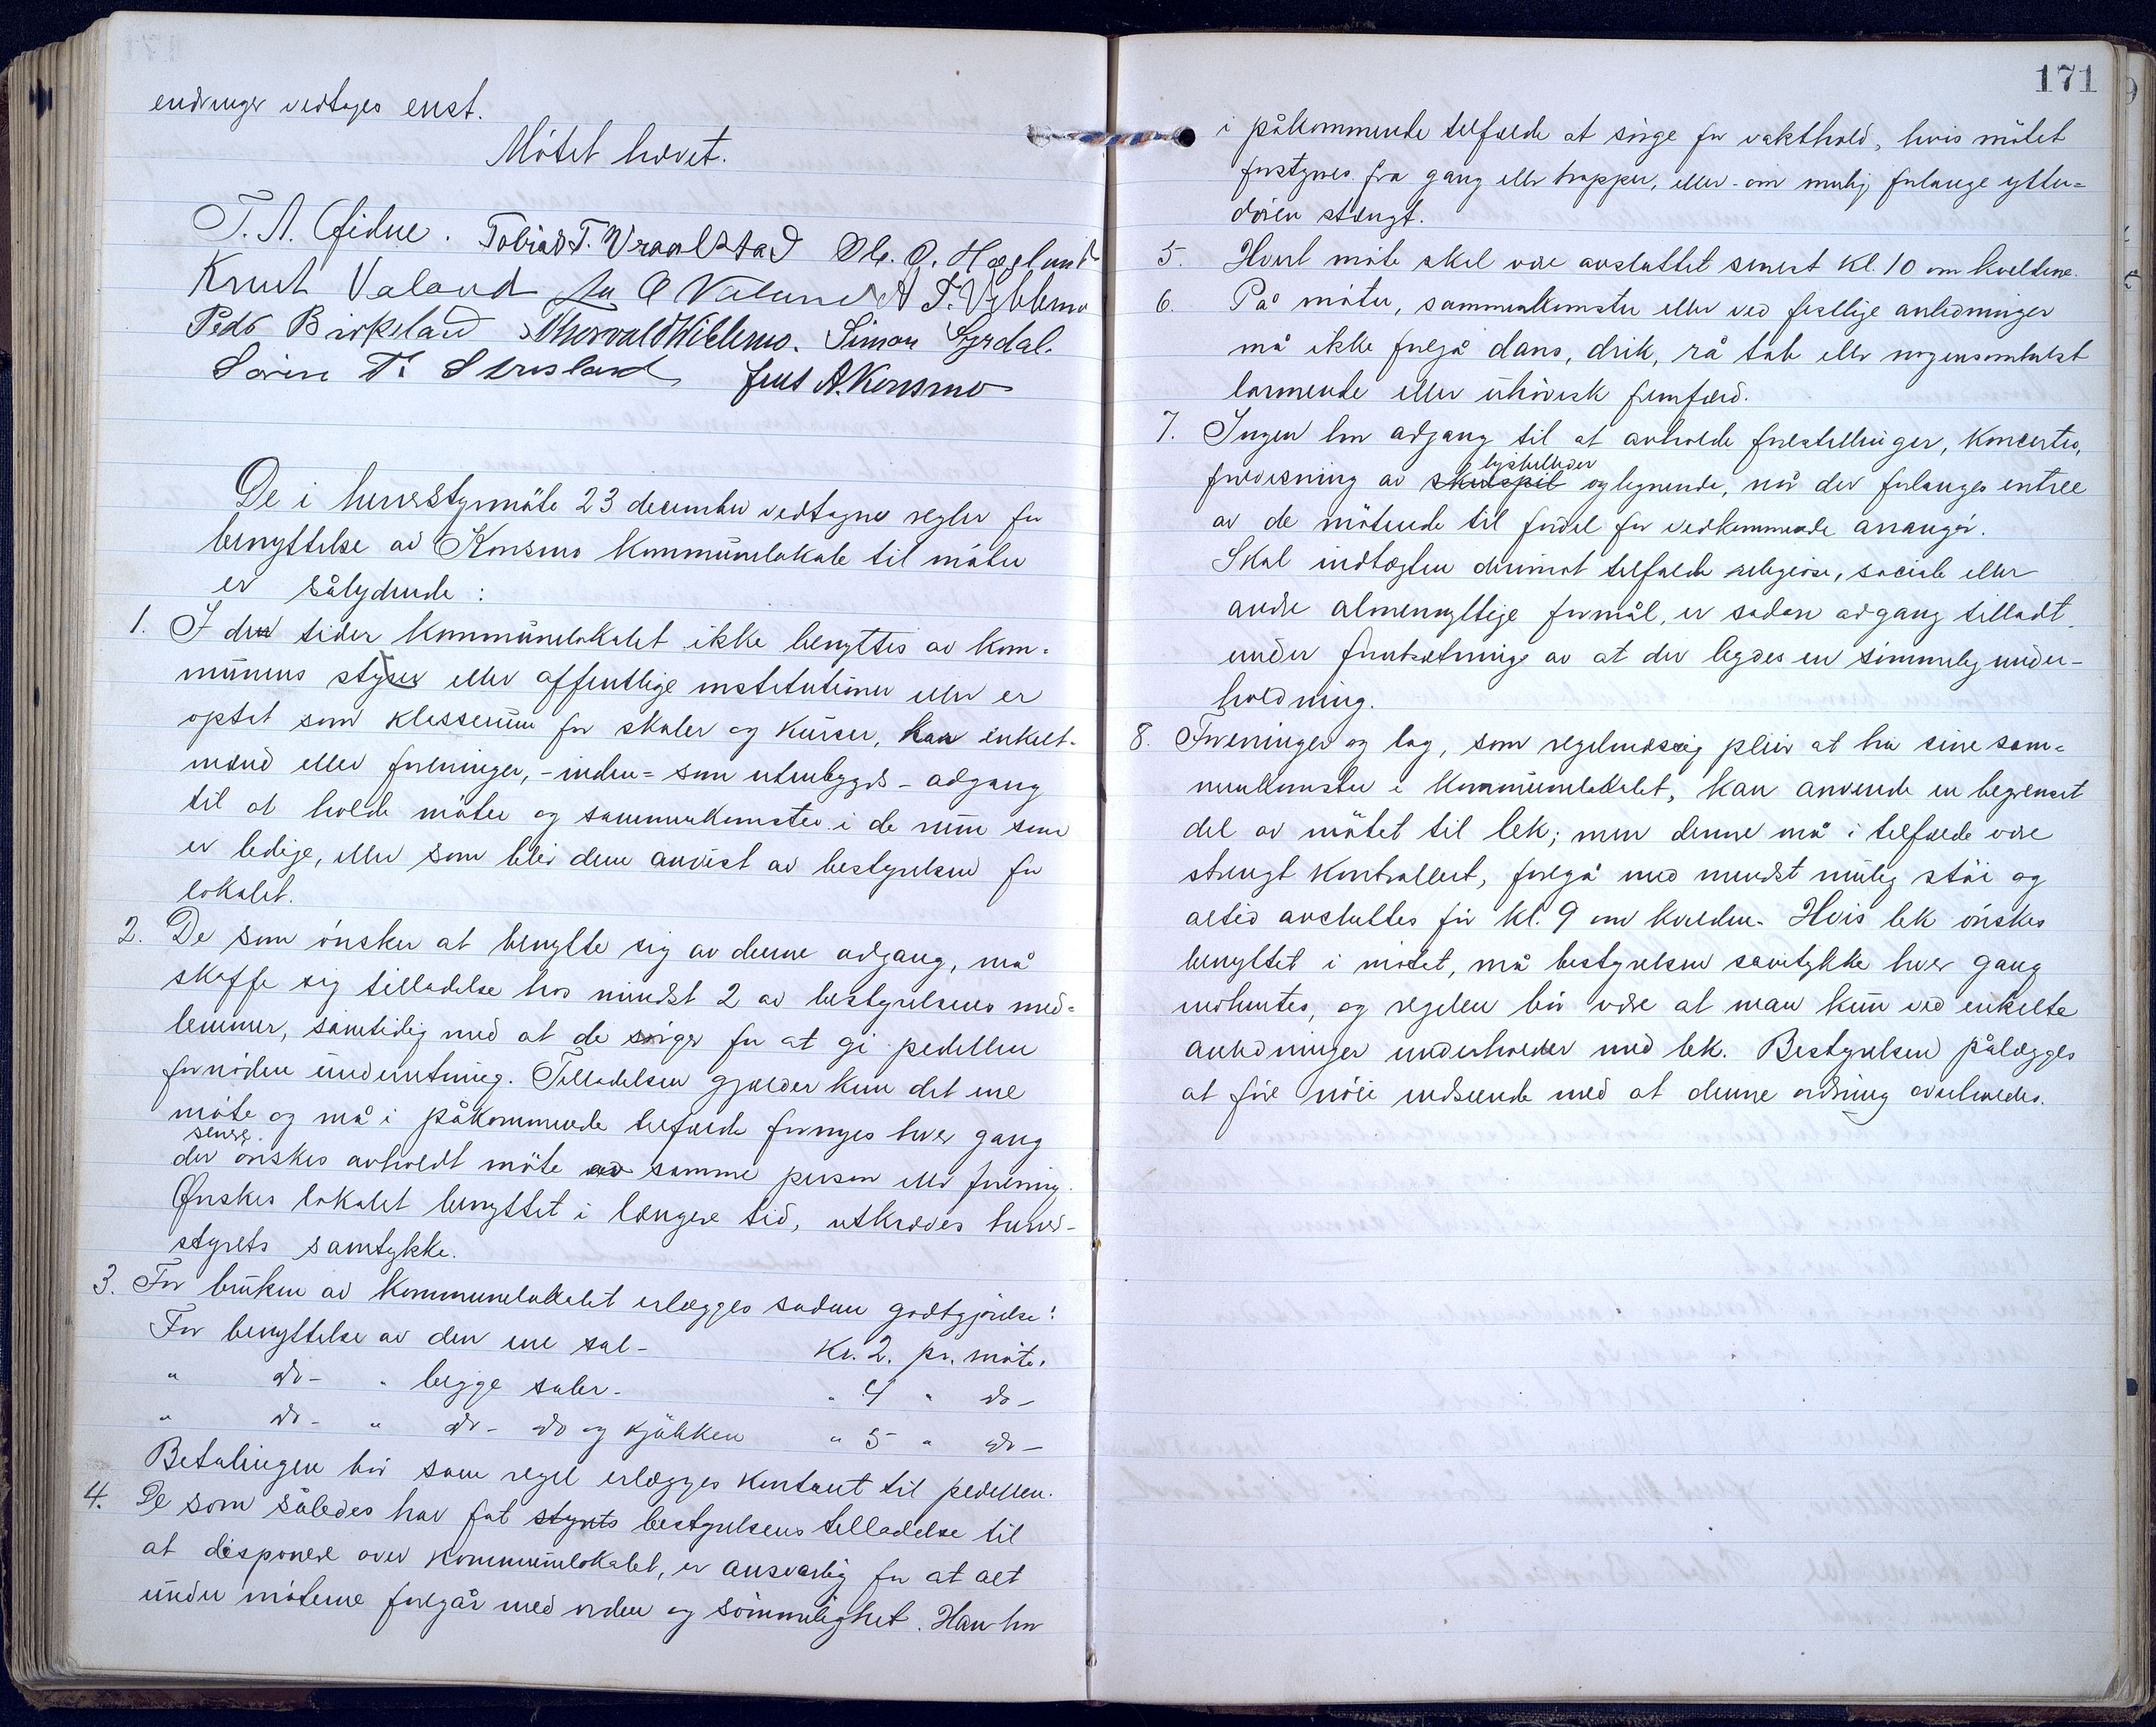 endringer vedtages enst.
Mötet hævet.
T. A. Eidne. Tobias T. Vraalstad Ole. O. Hægland
Knut Valand O Valand A T. Vibbemo
Peds Birkeland Thorvald Wiblemo. Simon Lyrdal.
Søren T. Stusland Jens A. Konsmo
De i herredsstyrmöte 23 december vedtagne regler for
benyttelse av Konsmo kommunelokale til möter
er sålydende:
1. I den tider kommunelokalet ikke benyttes av kom-
munens styrer eller offentlige institutioner eller er
optat som klasserum for skoler og kurser, har enkelt-
mænd eller foreninger, - inden- som utenbygds - adgang
til at holde möter og sammenkomster i de rum som
er ledige, eller som blir dem anvist av bestyrelsen for
lokalet.
2. De som önsker at benytte sig av denne adgang, må
skaffe sig tilladelse hos mindst 2 av bestyrelsens med-
lemmer, samtidig med at de sörger for at gi pedellen
fornöden underretning. Tilladelsen gjælder kun det ene
möte og må i påkommende tilfælde fornyes hver gang
senere
der önskes avholdt möte av samme person eller forening.
Ønskes lokalet benyttet i længere tid, utkræves herred-
styrets samtykke.
3. For bruken av kommunelokalet erlægges sådan godtgjörelse:
For benyttelse av den ene sal - Kr. 2. pr. möte.
" do - " begge saler - " 4 " do -
" do - " do - do og kjökken " 5 " do -
Betalingen bör som regel erlægges kontant til pedellen.
4. De som således har fåt styrets bestyrelsens tilladelse til
at disponere over kommunelokalet, er ansvarlig for at alt
under möterne foregår med orden og sömmelighet. Han har
171
i påkommende tilfælde at sörge for vakthold, hvis mötet
forstyrres fra gang eller trapper, eller - om mulig forlange ytter-
dören stængt.
5. Hvert möte skal være avsluttet senest kl. 10 om kveldene.
6. På möter, sammenkomster eller ved festlige anledninger
må ikke foregå dans, drik, rå tale eller nogensomhelst
larmende eller uhövisk fremfærd.
7. Ingen har adgang til at avholde forestillinger, koncerter,
lysbilleder
forevisning av skuespil og lignende, når der forlanges entree
av de mötende til fordel for vedkommende arrangör.
Skal indtægten derimot tilfalde religiöse, sociale eller
andre almennyttige formål, er sadan adgang tilladt
under forutsetninge av at der bydes en sömmelig under-
holdning.
8. Foreninger og lag, som regelmæssig pleier at ha sine sam-
menkomster i kommunelokalet, kan anvende en begrenset
del av mötet til lek; men denne må i tilfælde være
strengt kontrollert, foregå med mindst mulig stöi og
altid avsluttes för kl. 9 om kvelden. Hvis lek önskes
benyttet i mötet, må bestyrelsens samtykke hver gang
indhentes, og regelen bör være at man kun ved enkelte
anledninger underholder med lek. Bestyrelsen pålægges
at före nöie indseende med at denne ordning overholdes.